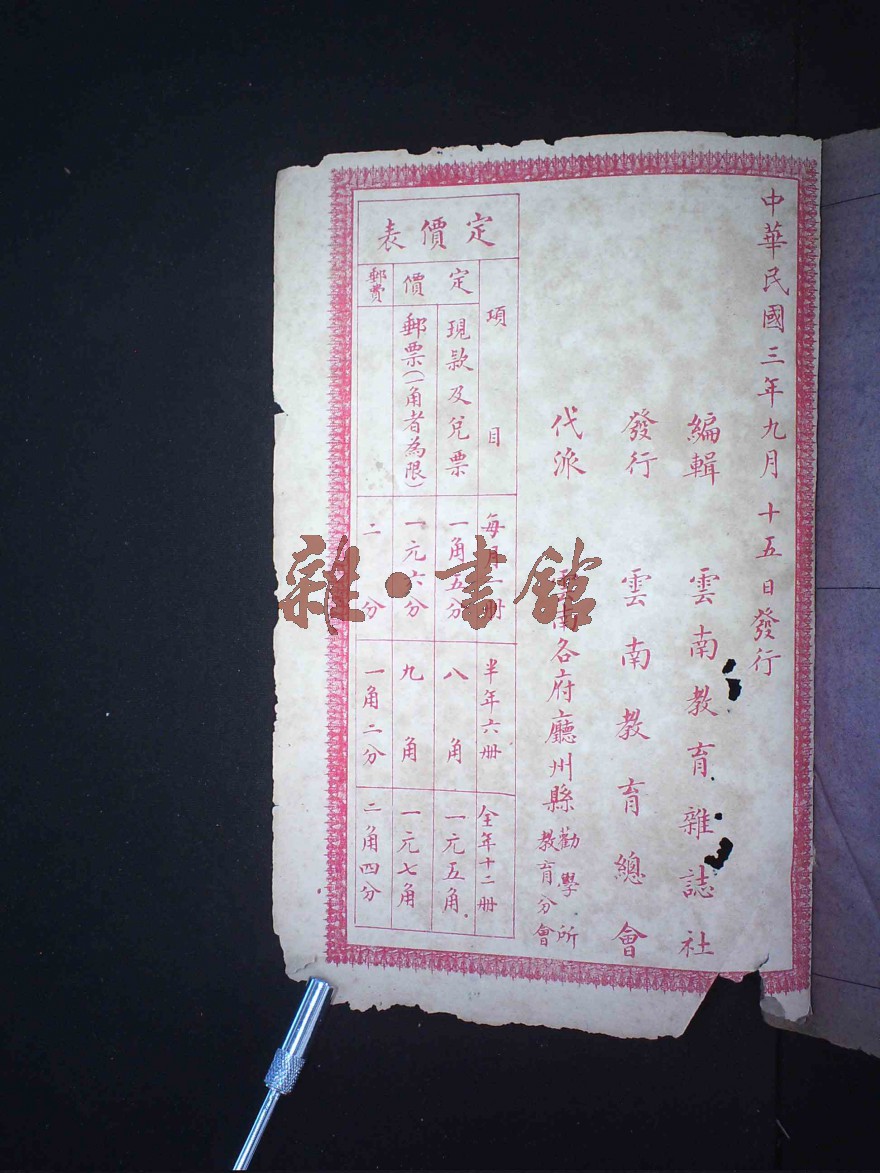 中華民國三年九月十五日發行
編輯 雲南教育雜誌社
發行 雲南教育總會
代派 雲南各府廳州縣勸學所教育分會
定價表
項目 每月一冊 半年六冊 全年十二冊
定價
現款及兌票 一角五分 八角 一元五角
郵票(一角者為限) 一元六分 九角 一元七角
郵費 二分 一角二分 二角四分
雜·書館